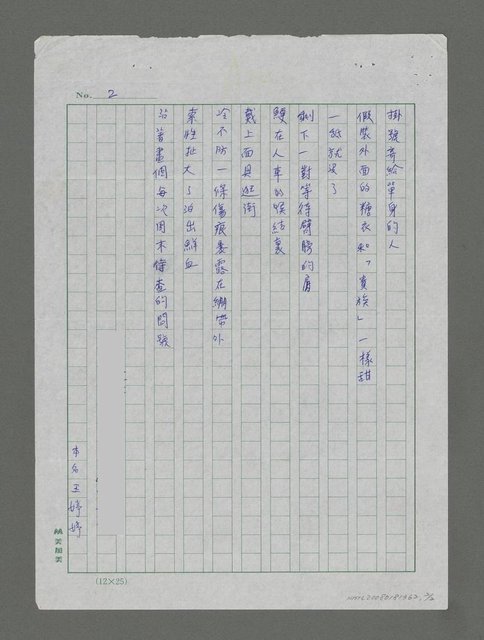 No. 2
掛號寄給單身的人
假裝外面的糖衣和「貴族」一樣甜
一舐就沒了
剩下一對等待臂膀的肩
鯁在人車的喉結裏
戴上面具逛街
冷不防一條傷痕裹露在繃帶外
索性扯大了泊出鮮血
沿著畫個每次用來偵查的問號
本名王婷婷
(12×25)